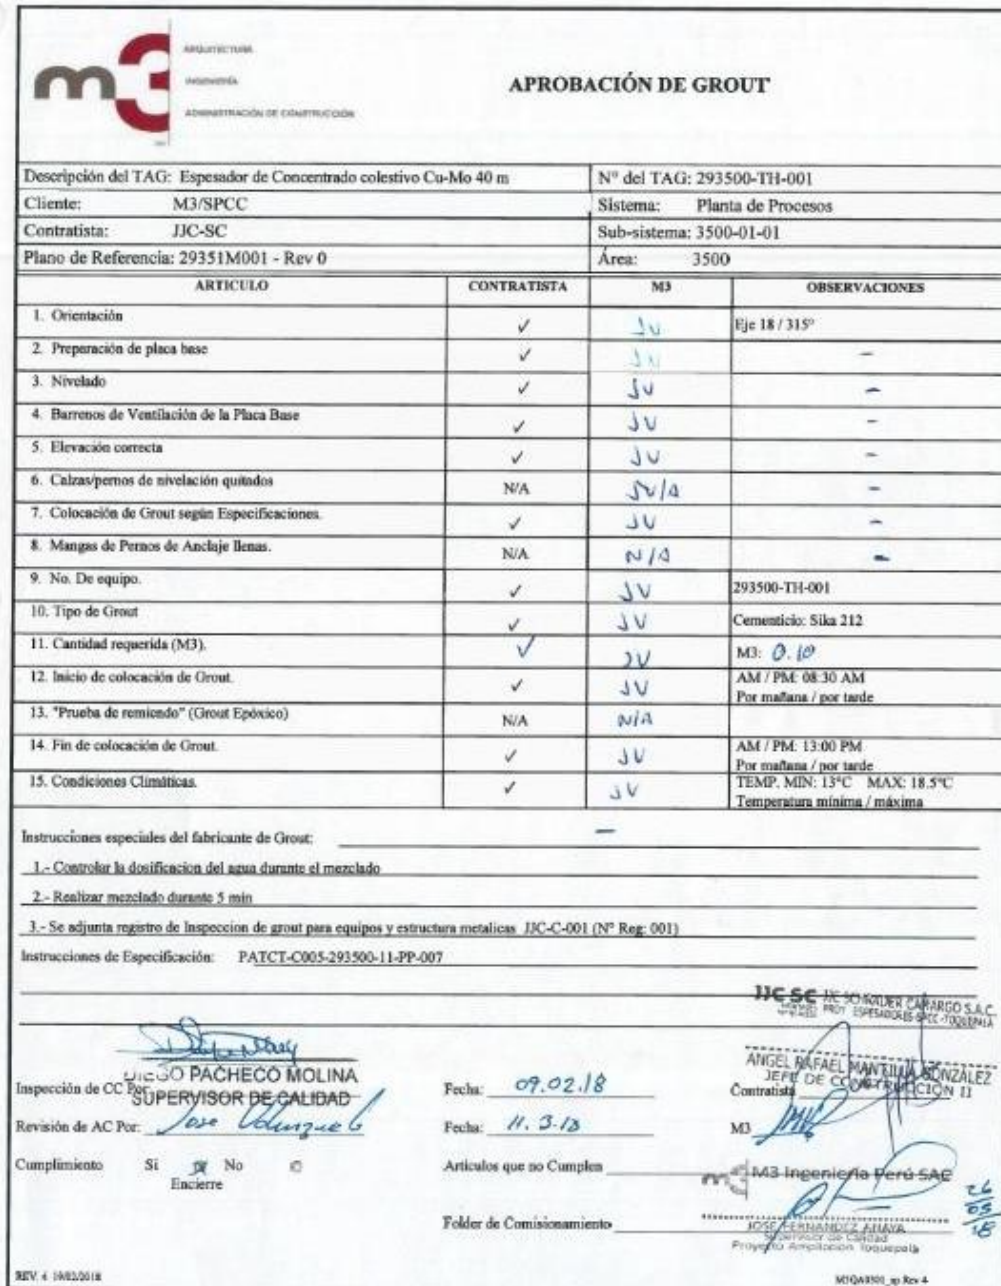 m3
ARQUITECTURA
INGENIERÍA
ADMINISTRACIÓN DE CONSTRUCCIÓN
APROBACIÓN DE GROUT
Descripción del TAG: Espesador de Concentrado colestivo Cu-Mo 40 m N° del TAG: 293500-TH-001
Cliente: M3/SPCC Sistema: Planta de Procesos
Contratista: JJC-SC Sub-sistema: 3500-01-01
Plano de Referencia: 29351M001 - Rev 0 Área: 3500
ARTICULO CONTRATISTA M3 OBSERVACIONES
1. Orientación ✓ JV Eje 18 / 315°
2. Preparación de placa base ✓ JV -
3. Nivelado ✓ JV -
4. Barrenos de Ventilación de la Placa Base ✓ JV -
5. Elevación correcta ✓ JV -
6. Calzas/pernos de nivelación quitados N/A -
7. Colocación de Grout según Especificaciones. ✓ JV -
8. Mangas de Pernos de Anclaje llenas. N/A N/A -
9. No. De equipo. ✓ JV 293500-TH-001
10. Tipo de Grout ✓ JV Cementicio: Sika 212
11. Cantidad requerida (M3). ✓ JV M3: 0.10
12. Inicio de colocación de Grout. ✓ JV AM / PM: 08:30 AM
Por mañana / por tarde
13. "Prueba de remiendo" (Grout Epóxico) N/A N/A
14. Fin de colocación de Grout. ✓ JV AM / PM: 13:00 PM
Por mañana / por tarde
15. Condiciones Climáticas. ✓ JV TEMP. MIN: 13°C MAX: 18.5°C
Temperatura mínima / máxima
Instrucciones especiales del fabricante de Grout: -
1.- Controlar la dosificacion del agua durante el mezclado
2.- Realizar mezclado durante 5 min
3.- Se adjunta registro de Inspeccion de grout para equipos y estructura metalicas JJC-C-001 (N° Reg: 001)
Instrucciones de Especificación: PATCT-C005-293500-11-PP-007
JJC SC JJC SCHRADER CAMARGO S.A.C.
PROY. ESPESADORES-SPCC-TOQUEPALA
DIEGO PACHECO MOLINA
SUPERVISOR DE CALIDAD
ANGEL RAFAEL MANTILLA GONZALEZ
JEFE DE CONSTRUCCIÓN II
Inspección de CC Por: Fecha: 09.02.18 Contratista
Revisión de AC Por: Jose Fecha: 11.3.18 M3
Cumplimiento Si No Artículos que no Cumplen
Encierre
m3 M3 Ingeniería Perú SAC
26
05
18
Folder de Comisionamiento
JOSE FERNANDEZ ANAYA
Supervisor de Calidad
Proyecto Ampliación Toquepala
REV. 4 19/02/2018